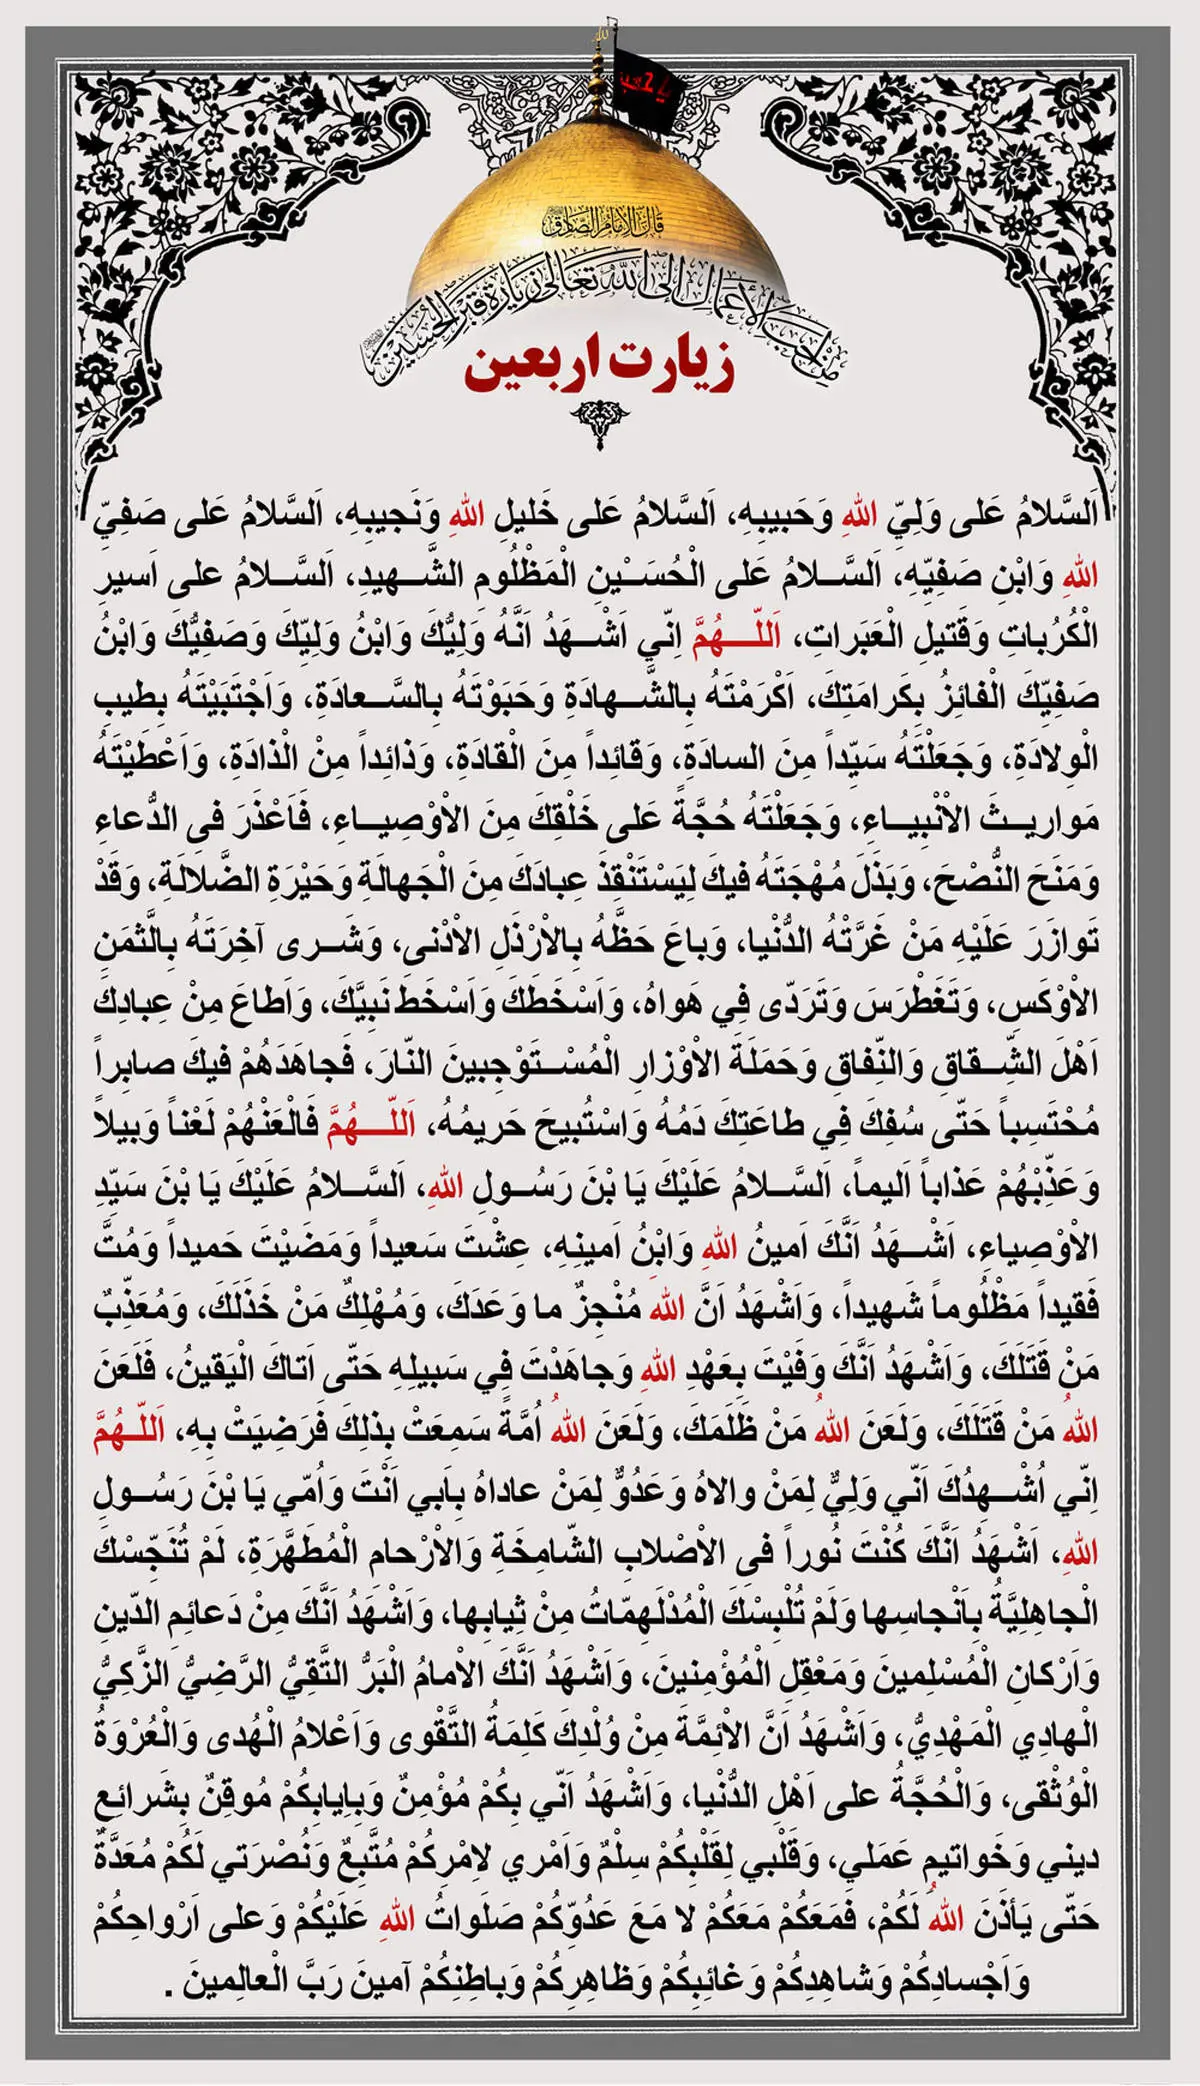 قَالَ الْإِمَامُ الصَّادِقُ
مِنْ أَحَبِّ الْأَعْمَالِ إِلَى اللّٰهِ تَعَالَى زِيَارَةُ قَبْرِ الْحُسَيْنِ
زیارت اربعین
اَلسَّلامُ عَلى وَلِيِّ اللهِ وَحَبيبِهِ، اَلسَّلامُ عَلى خَليلِ اللهِ وَنَجيبِهِ، اَلسَّلامُ عَلى صَفِيِّ
اللهِ وَابْنِ صَفِيِّهِ، اَلسَّلامُ عَلى الْحُسَيْنِ الْمَظْلُومِ الشَّهيدِ، اَلسَّلامُ على اَسيرِ
الْكُرُباتِ وَقَتيلِ الْعَبَراتِ، اَللّهُمَّ اِنّي اَشْهَدُ اَنَّهُ وَلِيُّكَ وَابْنُ وَلِيِّكَ وَصَفِيُّكَ وَابْنُ
صَفِيِّكَ الْفائِزُ بِكَرامَتِكَ، اَكْرَمْتَهُ بِالشَّهادَةِ وَحَبَوْتَهُ بِالسَّعادَةِ، وَاَجْتَبَيْتَهُ بِطيبِ
الْوِلادَةِ، وَجَعَلْتَهُ سَيِّداً مِنَ السادَةِ، وَقائِداً مِنَ الْقادَةِ، وَذائِداً مِنْ الْذادَةِ، وَاَعْطَيْتَهُ
مَواريثَ الاَْنْبِياءِ، وَجَعَلْتَهُ حُجَّةً عَلى خَلْقِكَ مِنَ الاَْوْصِياءِ، فَاَعْذَرَ فى الدُّعاءِ
وَمَنَحَ النُّصْحَ، وَبَذَلَ مُهْجَتَهُ فيكَ لِيَسْتَنْقِذَ عِبادَكَ مِنَ الْجَهالَةِ وَحَيْرَةِ الضَّلالَةِ، وَقَدْ
تَوازَرَ عَلَيْهِ مَنْ غَرَّتْهُ الدُّنْيا، وَباعَ حَظَّهُ بِالاَْرْذَلِ الاَْدْنى، وَشَرى آخِرَتَهُ بِالَّثمَنِ
الاَْوْكَسِ، وَتَغَطْرَسَ وَتَرَدّى فِي هَواهُ، وَاَسْخَطَكَ وَاَسْخَطَ نَبِيَّكَ، وَاَطاعَ مِنْ عِبادِكَ
اَهْلَ الشِّقاقِ وَالنِّفاقِ وَحَمَلَةَ الاَْوْزارِ الْمُسْتَوْجِبينَ النّارَ، فَجاهَدَهُمْ فيكَ صابِراً
مُحْتَسِباً حَتّى سُفِكَ فِي طاعَتِكَ دَمُهُ وَاسْتُبيحَ حَريمُهُ، اَللّهُمَّ فَالْعَنْهُمْ لَعْناً وَبيلاً
وَعَذِّبْهُمْ عَذاباً اَليما، اَلسَّلامُ عَلَيْكَ يَا بْنَ رَسُولِ اللهِ، اَلسَّلامُ عَلَيْكَ يَا بْنَ سَيِّدِ
الاَْوْصِياءِ، اَشْهَدُ اَنَّكَ اَمينُ اللهِ وَابْنُ اَمينِهِ، عِشْتَ سَعيداً وَمَضَيْتَ حَميداً وَمُتَّ
فَقيداً مَظْلُوماً شَهيداً، وَاَشْهَدُ اَنَّ اللهَ مُنْجِزٌ ما وَعَدَكَ، وَمُهْلِكٌ مَنْ خَذَلَكَ، وَمُعَذِّبٌ
مَنْ قَتَلَكَ، وَاَشْهَدُ اَنَّكَ وَفَيْتَ بِعَهْدِ اللهِ وَجاهَدْتَ فِي سَبيلِهِ حَتّى اَتاكَ الْيَقينُ، فَلَعَنَ
اللهُ مَنْ قَتَلَكَ، وَلَعَنَ اللهُ مَنْ ظَلَمَكَ، وَلَعَنَ اللهُ اُمَّةً سَمِعَتْ بِذلِكَ فَرَضِيَتْ بِهِ، اَللّهُمَّ
اِنّي اُشْهِدُكَ اَنّي وَلِيٌّ لِمَنْ والاهُ وَعَدُوٌّ لِمَنْ عاداهُ بِاَبي اَنْتَ وَاُمّي يَا بْنَ رَسُولِ
اللهِ، اَشْهَدُ اَنَّكَ كُنْتَ نُوراً فى الاَْصْلابِ الشّامِخَةِ وَالاَْرْحامِ الْمُطَهَّرَةِ، لَمْ تُنَجِّسْكَ
الْجاهِلِيَّةُ بِاَنْجاسِها وَلَمْ تُلْبِسْكَ الْمُدْلَهِمّاتُ مِنْ ثِيابِها، وَاَشْهَدُ اَنَّكَ مِنْ دَعائِمِ الدّينِ
وَاَرْكانِ الْمُسْلِمينَ وَمَعْقِلِ الْمُؤْمِنينَ، وَاَشْهَدُ اَنَّكَ الاِمامُ الْبَرُّ التَّقِيُّ الرَّضِيُّ الزَّكِيُّ
الْهادِي الْمَهْدِيُّ، وَاَشْهَدُ اَنَّ الاَْئِمَّةَ مِنْ وُلْدِكَ كَلِمَةُ التَّقْوى وَاَعْلامُ الْهُدى وَالْعُرْوَةُ
الْوُثْقى، وَالْحُجَّةُ على اَهْلِ الدُّنْيا، وَاَشْهَدُ اَنّي بِكُمْ مُؤْمِنٌ وَبِاِيابِكُمْ مُوقِنٌ بِشَرائِعِ
ديني وَخَواتيمِ عَمَلي، وَقَلْبي لِقَلْبِكُمْ سِلْمٌ وَاَمْري لاَِمْرِكُمْ مُتَّبِعٌ وَنُصْرَتي لَكُمْ مُعَدَّةٌ
حَتّى يَأذَنَ اللهُ لَكُمْ، فَمَعَكُمْ مَعَكُمْ لا مَعَ عَدُوِّكُمْ صَلَواتُ اللهِ عَلَيْكُمْ وَعلى اَرْواحِكُمْ
وَاَجْسادِكُمْ وَشاهِدِكُمْ وَغائِبِكُمْ وَظاهِرِكُمْ وَباطِنِكُمْ آمينَ رَبَّ الْعالِمينَ .